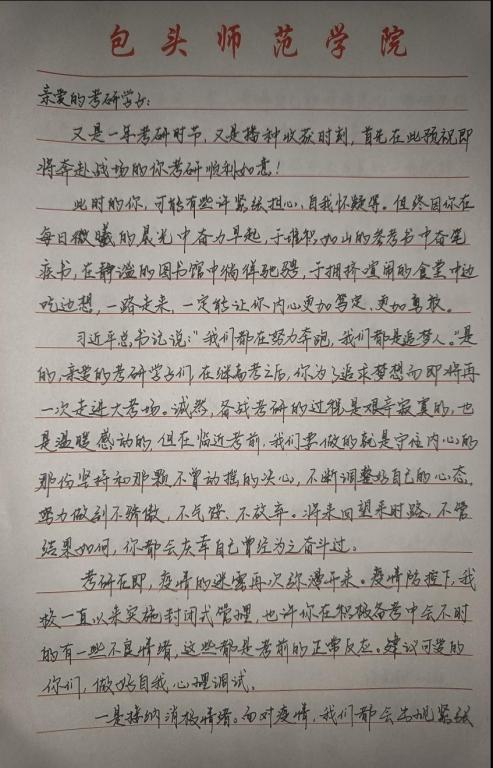 包头师范学院
亲爱的考研学子:
又是一年考研时节,又是播种收获时刻,首先在此预祝即
将奔赴战场的你考研顺利如意!
此时的你,可能有些许紧张担心、自我怀疑等。但终因你在
每日微曦的晨光中奋力早起,于堆积如山的参考书中奋笔
疾书,在静谧的图书馆中徜徉驰骋,于拥挤喧闹的食堂中边
吃边想,一路走来,一定能让你内心更加笃定、更加勇敢。
习近平总书记说:"我们都在努力奔跑,我们都是追梦人。"是
的,亲爱的考研学子们,在继高考之后,你为了追求梦想而即将再
一次走进大考场。诚然,备战考研的过程是艰辛寂寞的,也
是温暖感动的,但在临近考前,我们要做的就是守住内心的
那份坚持和那颗不曾动摇的决心,不断调整好自己的心态,
努力做到不骄傲、不气馁、不放弃。将来回望来时路,不管
结果如何,你都会庆幸自己曾经为之奋斗过。
考研在即,疫情的迷雾再次弥漫开来。疫情防控下,我
校一直以来实施封闭式管理,也许你在积极备考中会不时
的有一些不良情绪,这些都是考前的正常反应。建议可爱的
你们,做好自我心理调试。
一是接纳消极情绪。面对疫情,我们都会出现紧张